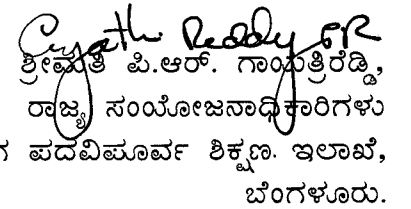 Reddy PR
ಶ್ರೀಮತಿ ಪಿ.ಆರ್. ಗಾಯತ್ರಿರೆಡ್ಡಿ,
ರಾಜ್ಯ ಸಂಯೋಜನಾಧಿಕಾರಿಗಳು
ಪದವಿಪೂರ್ವ ಶಿಕ್ಷಣ. ಇಲಾಖೆ,
ಬೆಂಗಳೂರು.